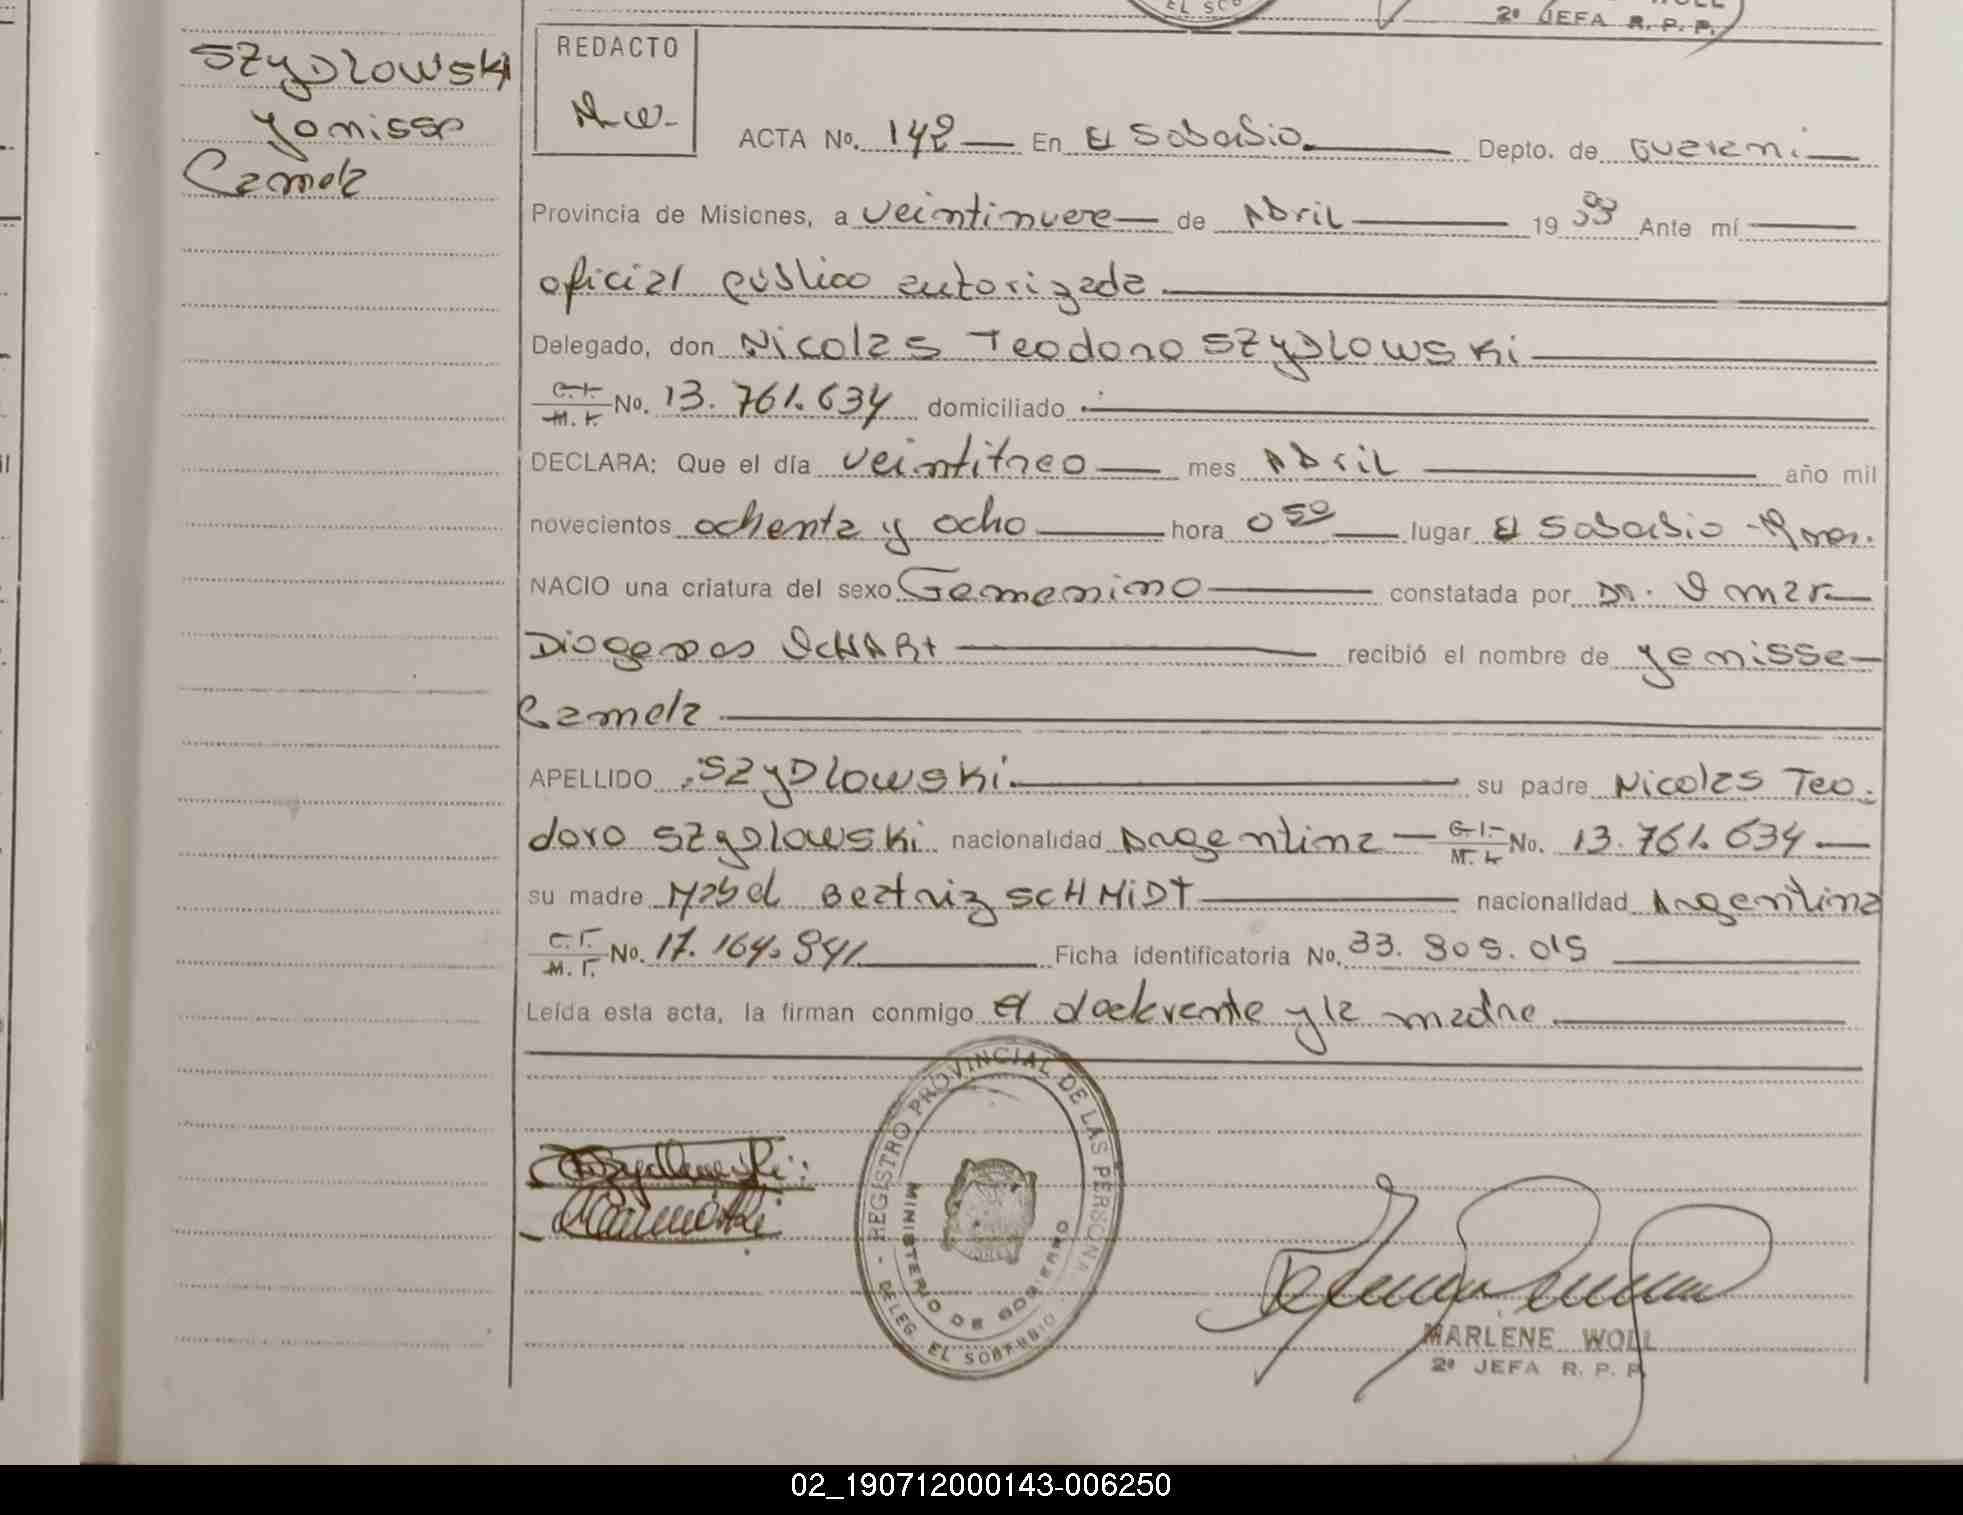 EL SOB
2º JEFA R. P. P.
SZYDLOWSKI
Yenisse
Camela
REDACTO
M.W.
ACTA No. 142 En El Soberbio Depto. de Guarani
Provincia de Misiones, a veintinueve de Abril 19 88 Ante mí
oficial publico autorizada
Delegado, don Nicolas Teodoro SZYDLOWSKi
C.I. M.I. No. 13.761.634 domiciliado
DECLARA: Que el día veintitreo mes Abril año mil
novecientos ochenta y ocho hora 0 50 lugar El Soberbio
NACIO una criatura del sexo Femenino constatada por Dr. Omar
Diogenes SCHART recibió el nombre de Yenisse
Camela
APELLIDO SZYDLOWSKi su padre Nicolas Teo
doro SZYDLOWSKi nacionalidad Argentina C.I. M.I. No. 13.761.634
su madre Mabel Beatriz SCHMiDT nacionalidad Argentina
C.I. M.I. No. 17.164.941 Ficha identificatoria No. 33.809.015
Leída esta acta, la firman conmigo el declarante y la madre
REGISTRO PROVINCIAL DE LAS PERSONAS
MINISTERIO DE GOBIERNO
DELEG. EL SOBERBIO
MARLENE WOLL
2º JEFA R. P. P.
02_190712000143-006250